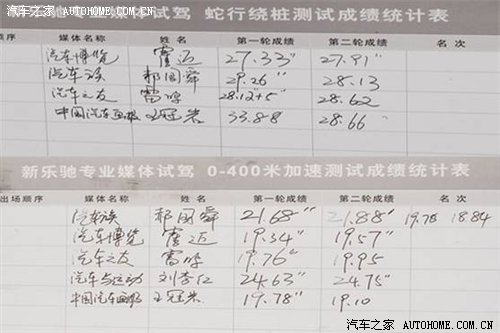 汽车之家 AUTOHOME.COM.CN
媒体试驾 蛇行绕桩测试成绩统计表
顺序 媒体名称 姓名 第一轮成绩 第二轮成绩 名次
汽车博览 霍迈 27.33" 27.91"
汽车族 祁国舜 29.26" 28.13
汽车之友 雷鸣 28.12+5" 28.62
中国汽车画报 王冠岩 33.88 28.66
新乐驰专业媒体试驾 0-400米加速测试成绩统计表
出场顺序 媒体名称 姓名 第一轮成绩 第二轮成绩 名次
汽车族 祁国舜 21.68" 21.88" 19.78 18.84
汽车博览 霍迈 19.34" 19.57"
汽车之友 雷鸣 19.76" 19.95
汽车与运动 24.63" 24.75"
中国汽车画报 王冠岩 19.78" 19.10
汽车之家 AUTOHOME.COM.CN